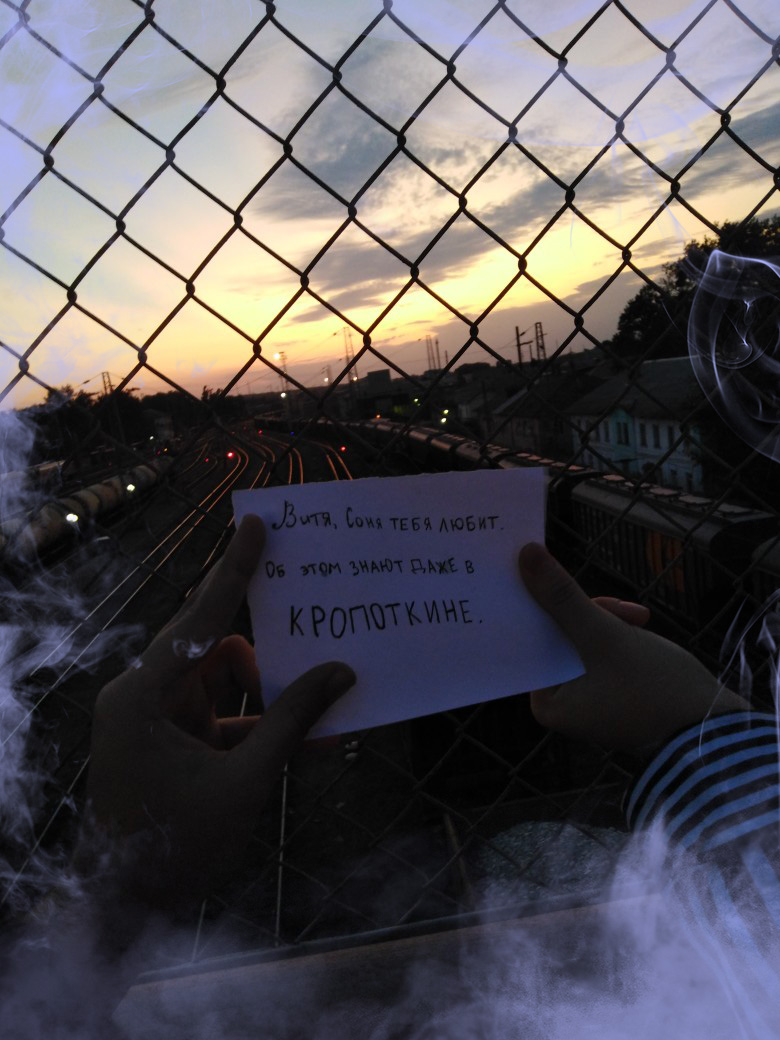 Витя, Соня тебя любит.
Об этом знают даже в
КРОПОТКИНЕ.